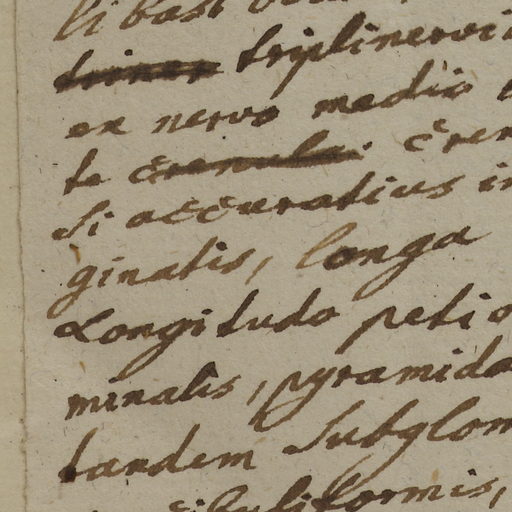 li basi
triner triplinervi
ex nervo medio
te crenula. cren
Si accuratius in
ginatis, longa
Longitudo petio
minalis, pyramida
tandem subglom
formis,